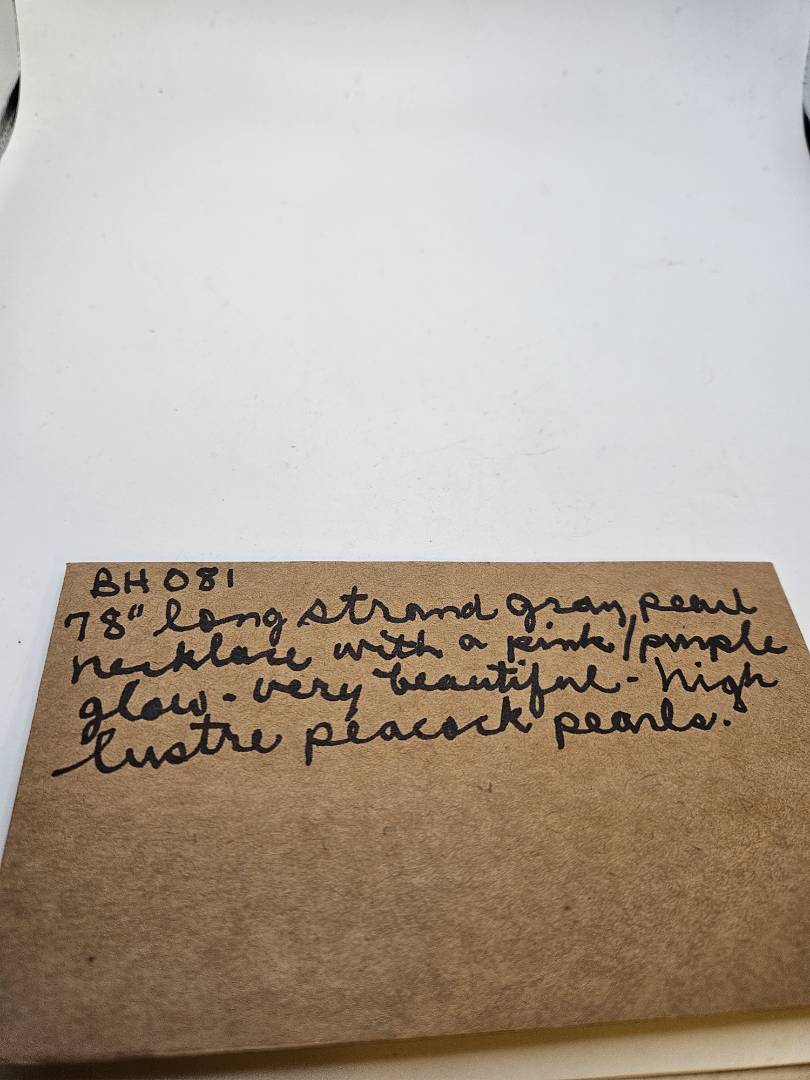 BH 081
78" long strand gray pearl
necklace with a pink/purple
glow - very beautiful - high
lustre peacock pearls.